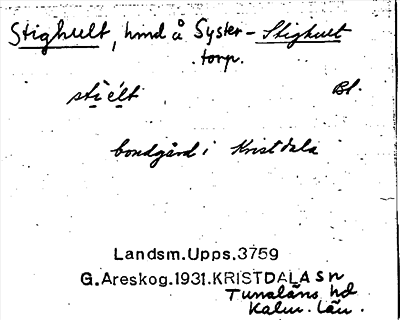 Stighult, hmd å Syster- Stighult
torp.
stiélt Bl.
bondgård i Kristdala
Landsm.Upps.3759
G.Areskog.1931.KRISTDALA Sn
Tunaläns hd
Kalm. län.